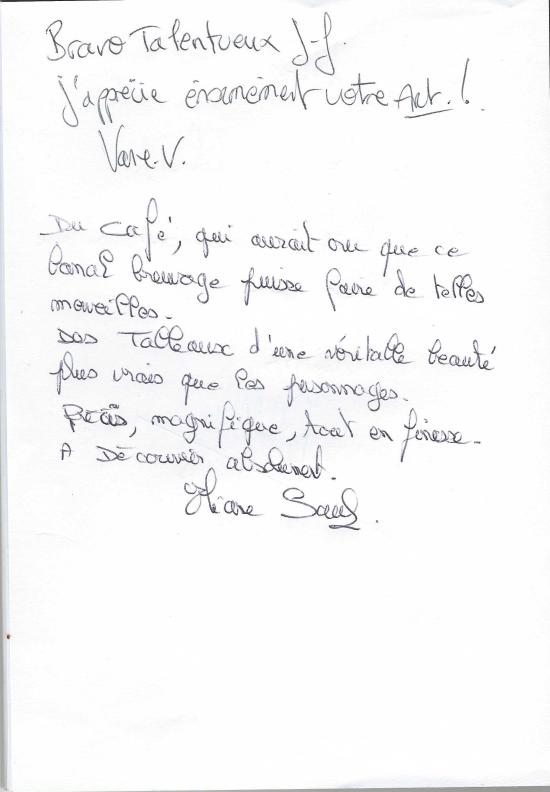 Bravo Talentueux J-J.
J'apprécie énormément votre Art.!
V.
Du café, qui aurait cru que ce
banal breuvage puisse faire de telles
merveilles.
Des Tableaux d'une véritable beauté
plus vrais que les personnages.
magnifique, tout en finesse.
A Découvrir absolument.